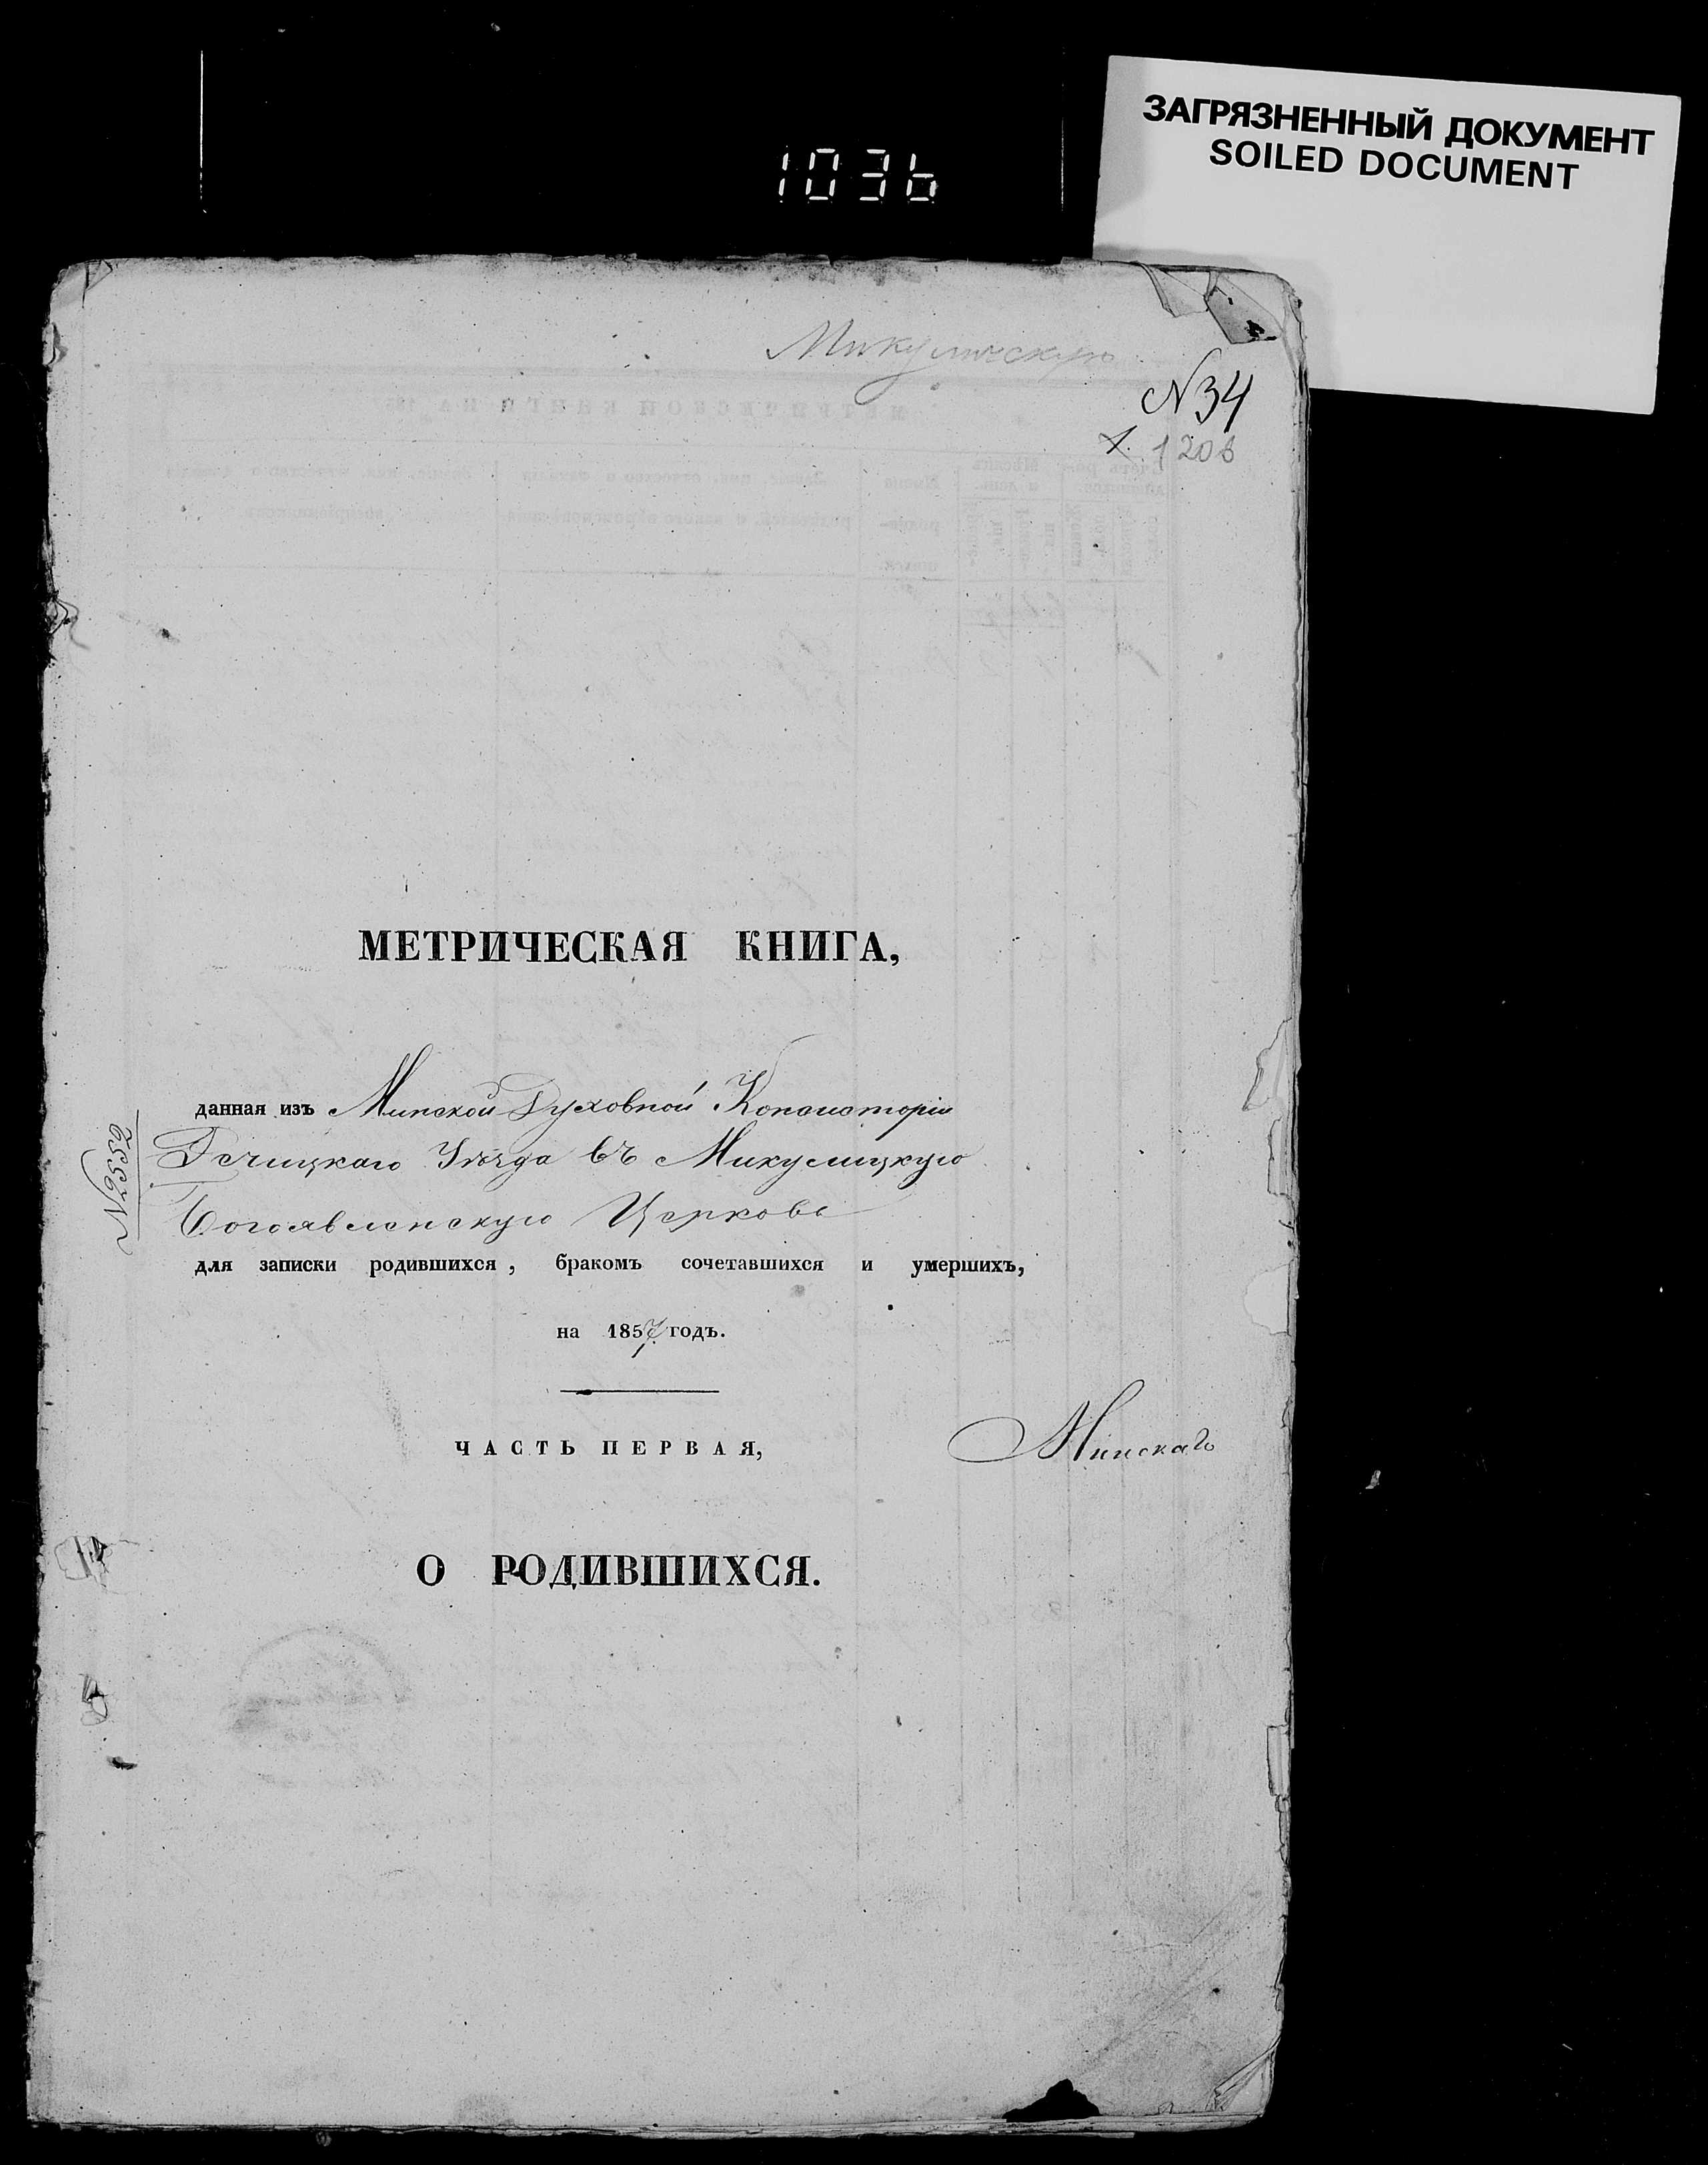 ЗАГРЯЗНЕННЫЙ ДОКУМЕНТ
SOILED DOCUMENT
1036
Микуличскую
N 34
1206
МЕТРИЧЕСКАЯ КНИГА,
данная изъ Минской Духовной Консисторіи
Речицкаго Уѣзда въ Микулицкую
Богоявленскую Церковь
N 2552
для записки родившихся, бракомъ сочетавшихся и умершихъ,
на 1857 годъ.
ЧАСТЬ ПЕРВАЯ,
Минскаго
О РОДИВШИХСЯ.